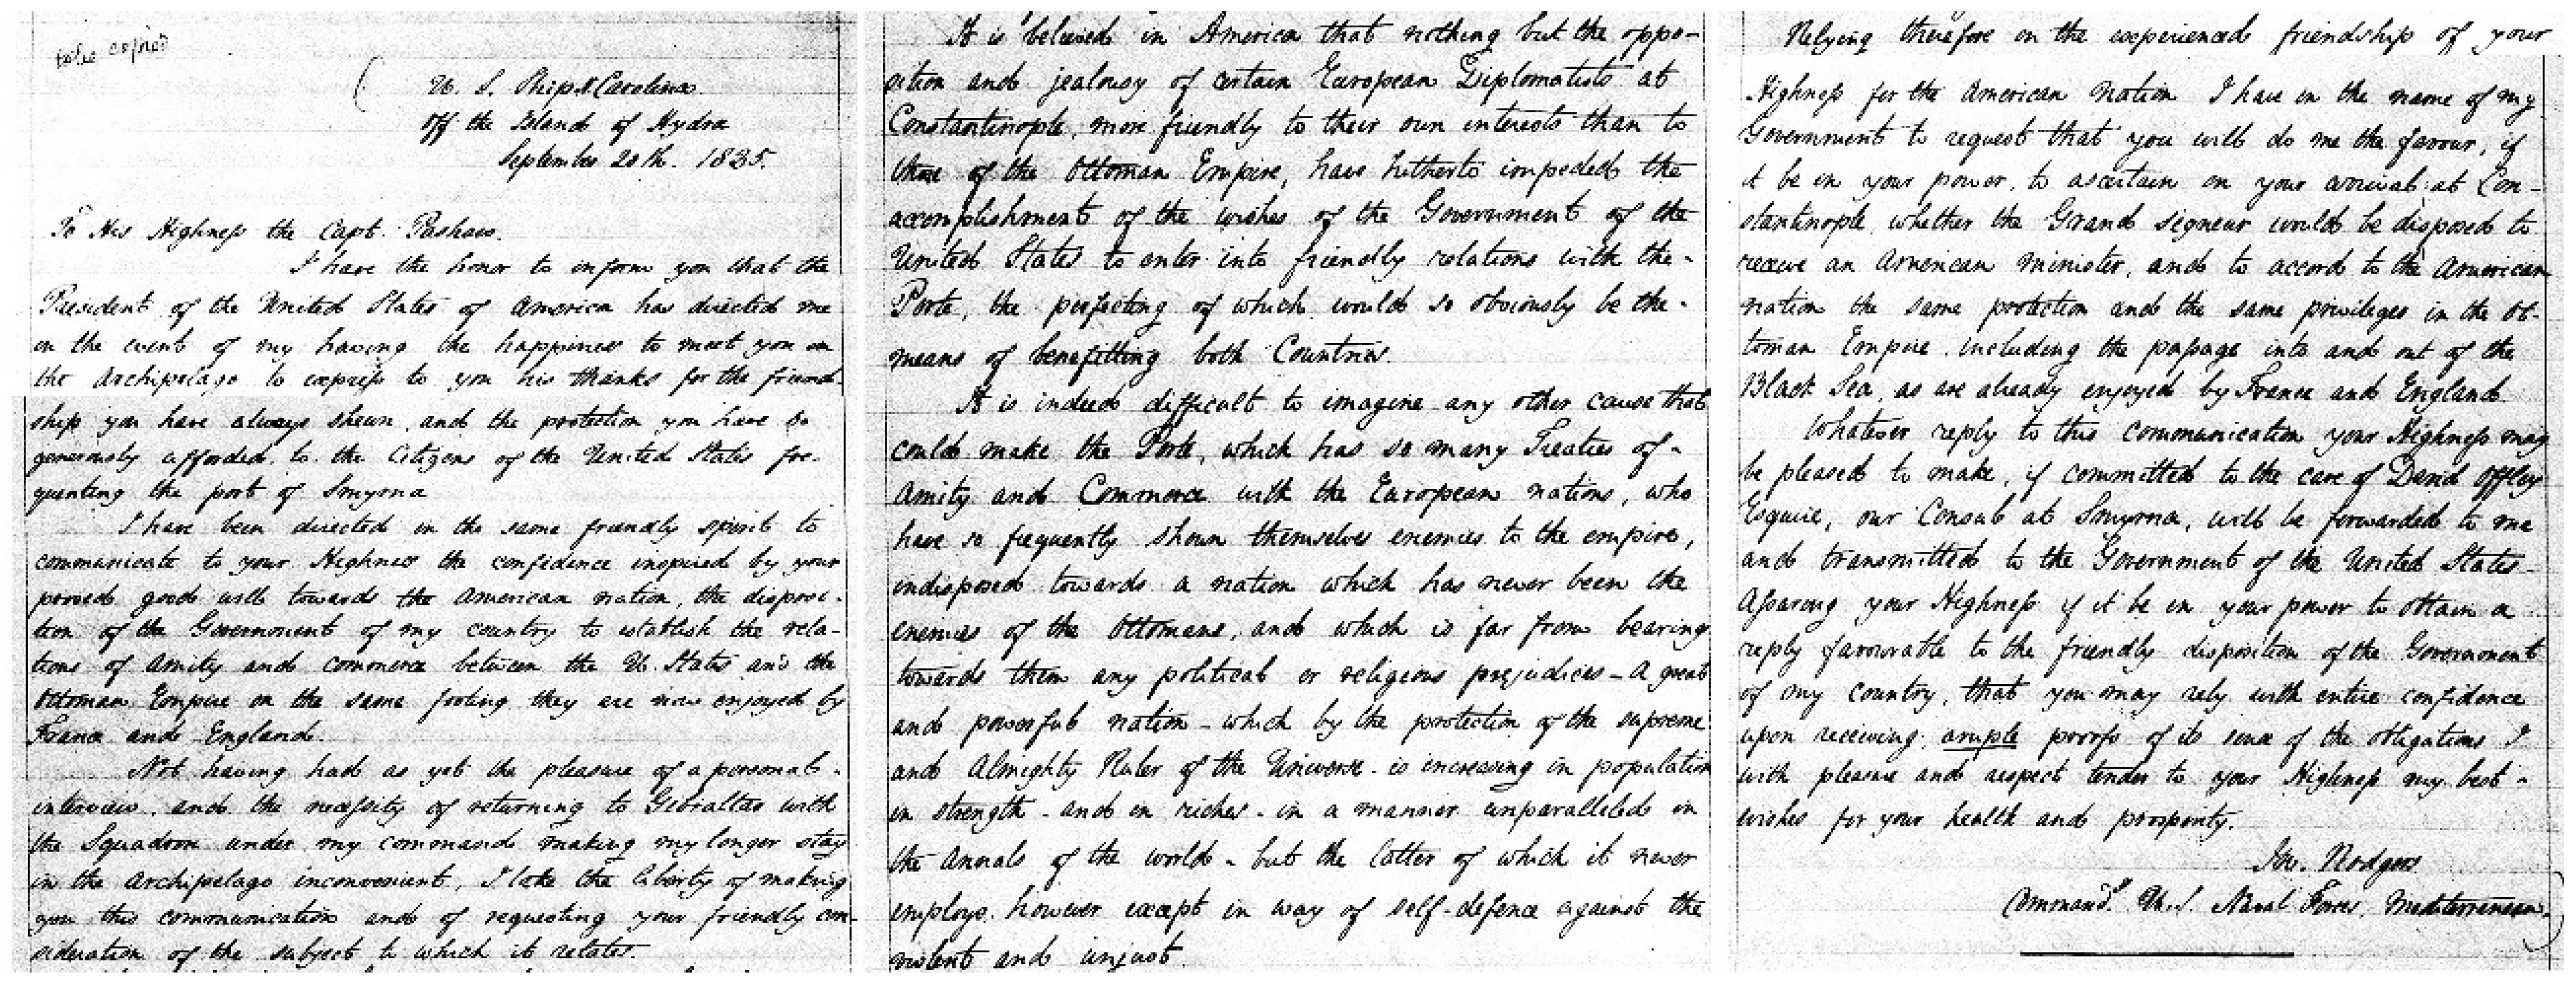 to be copied
U. S. Ship N. Carolina.
Off the Island of Hydra
September 20th. 1825.
To His Highness the Capt. Pashaw.
I have the honor to inform you that the
President of the United States of America has directed me
in the event of my having the happiness to meet you in
the Archipelago to express to you his thanks for the friend-
ship you have always shewn, and the protection you have so
generously afforded, to the Citizens of the United States fre-
quenting the port of Smyrna
I have been directed in the same friendly spirit to
communicate to your Highness the confidence inspired by your
proved good will towards the American nation, the disposi-
tion of the Government of my country to establish the rela-
tions of Amity and commerce between the U. States and the
Ottoman Empire on the same footing they are now enjoyed by
France and England.
Not having had as yet the pleasure of a personal-
interview, and the necessity of returning to Gibraltar with
the Squadron under my command making my longer stay
in the Archipelago inconvenient, I take the liberty of making
you this communication and of requesting your friendly con-
sideration of the subject to which it relates.
It is believed in America that nothing but the oppo-
sition and jealousy of certain European Diplomatists at
Constantinople, more friendly to their own interests than to
those of the Ottoman Empire, have hitherto impeded the
accomplishment of the wishes of the Government of the
United States to enter into friendly relations with the-
Porte, the perfecting of which would so obviously be the-
means of benefitting both Countries.
It is indeed difficult to imagine any other cause that
could make the Porte, which has so many Treaties of-
Amity and Commerce with the European nations, who
have so frequently shown themselves enemies to the empire,
indisposed towards a nation which has never been the
enemies of the Ottomans, and which is far from bearing
towards them any political or religious prejudices - a great
and powerful nation - which by the protection of the supreme
and Almighty Ruler of the Universe - is increasing in population
in strength - and in riches - in a manner unparalleled in
the annals of the world - but the latter of which it never
employs, however except in way of self-defence against the
violent and unjust.
Relying therefore on the experienced friendship of your
Highness for the American Nation I have in the name of my
Government to request that you will do me the favour, if
it be in your power, to ascertain on your arrival at Con-
stantinople whether the Grand Signeur would be disposed to
receive an American minister, and to accord to the American
nation the same protection and the same privileges in the Ot-
toman Empire including the passage into and out of the
Black Sea, as are already enjoyed by France and England.
Whatever reply to this communication your Highness may
be pleased to make, if committed to the care of David Offley
Esquire, our Consul at Smyrna, will be forwarded to me
and transmitted to the Government of the United States -
Assuring your Highness if it be in your power to obtain a
reply favourable to the friendly disposition of the Government
of my country, that you may rely with entire confidence
upon receiving ample proofs of its sense of the obligations I
with pleasure and respect tender to your Highness my best -
wishes for your health and prosperity.
Jno. Rodgers
Command.g U.S. Naval Forces, Mediterranean.